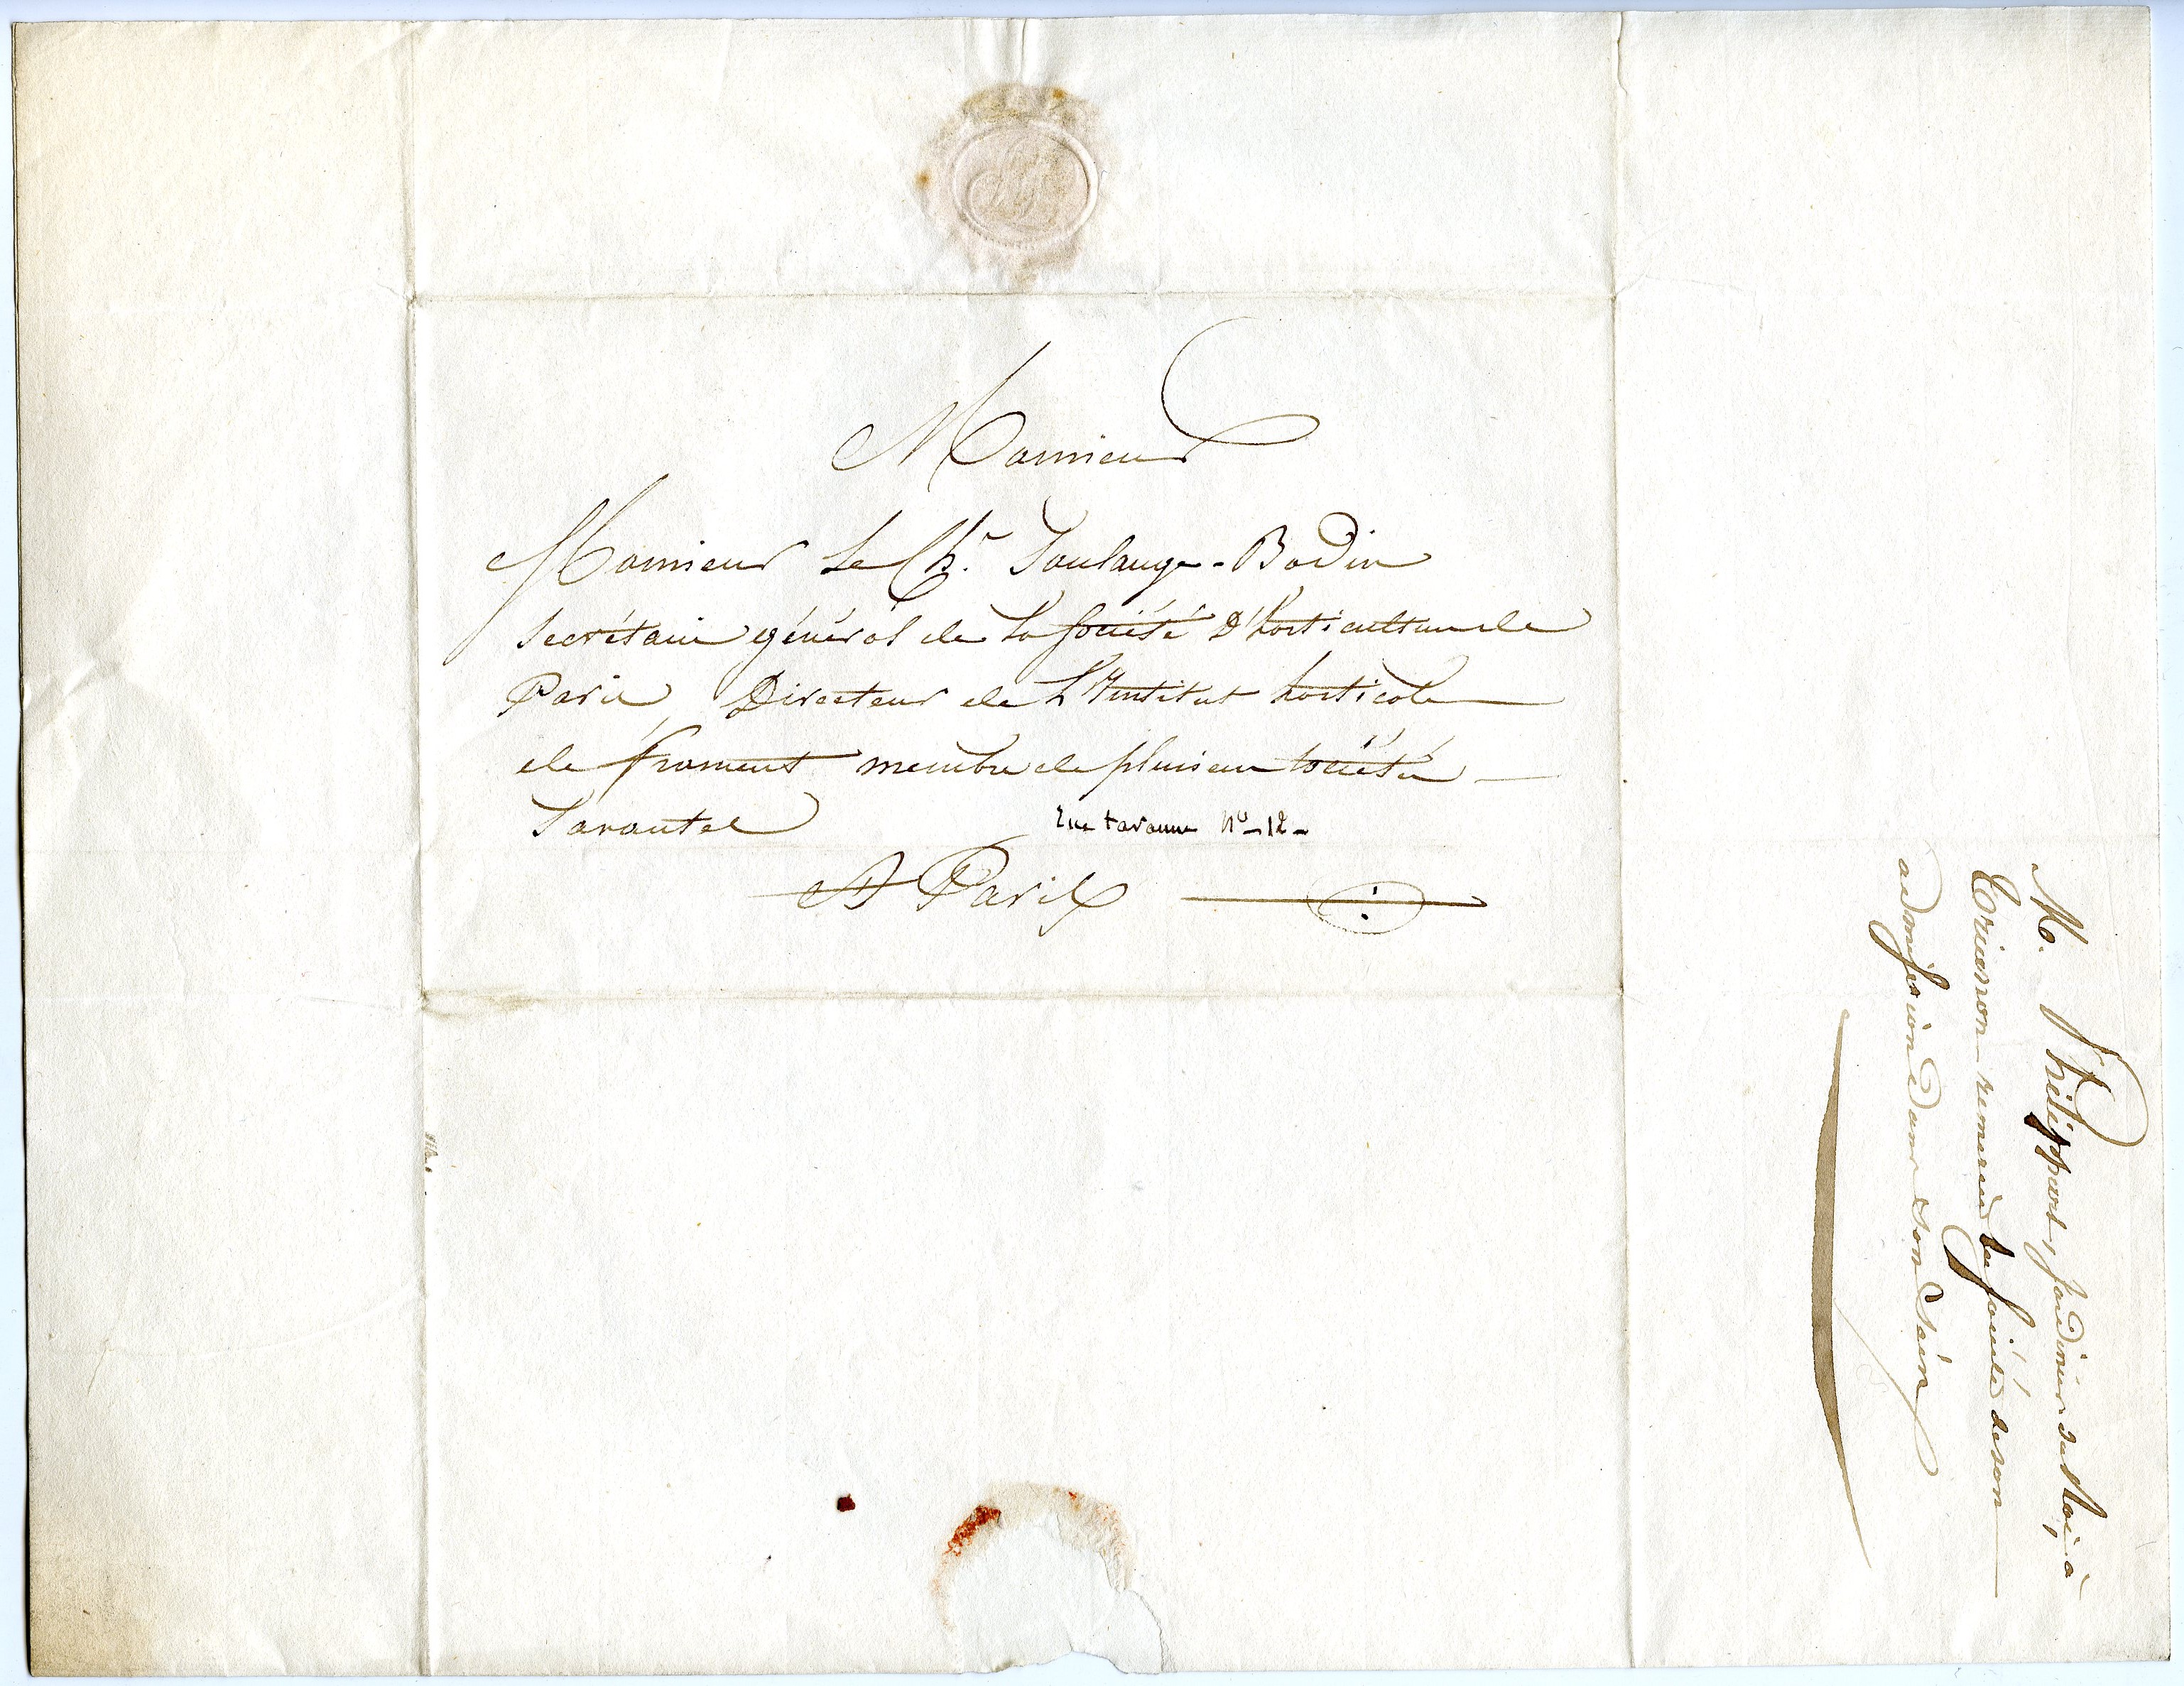 Monsieur
Monsieur Le Ch.r Soulange-Bodin
Secrétaire général de la Société D'horticulture de
Paris Directeur de L'Institut horticole
de froment membre de plusieurs sociétés
Savantes
rue taranne N° 12
A Paris
M. Philippart, Jardinier du Roi, à
Trianon remercie la Société de son
admission dans son Sein